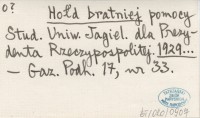 o?
Hołd bratniej pomocy
Stud. Uniw. Jagiel. dla Prezy-
denta Rzeczypospolitej. 1929...
— Gaz. Podh. 17, nr 33.